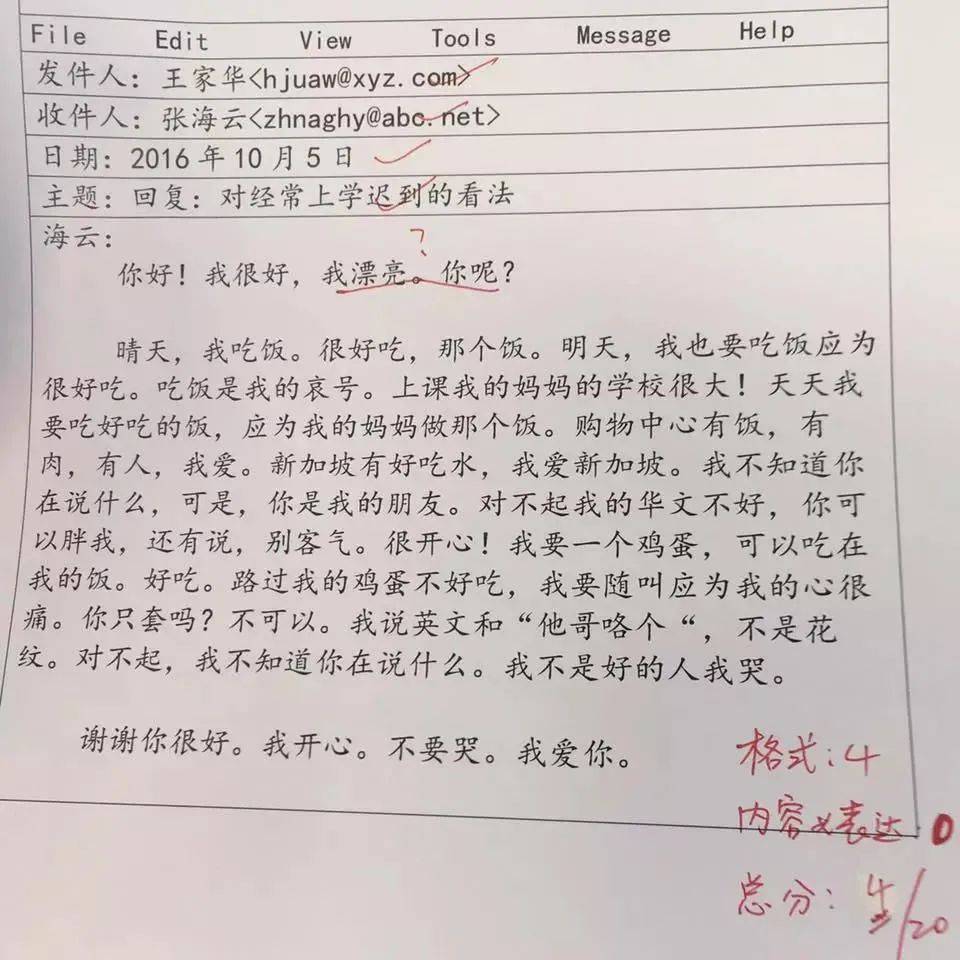 File Edit View Tools Message Help
发件人：王家华<hjuaw@xyz.com>
收件人：张海云<zhnaghy@abc.net>
日期：2016 年 10 月 5 日
主题：回复：对经常上学迟到的看法
海云：
?
你好！我很好，我漂亮。你呢？
晴天，我吃饭。很好吃，那个饭。明天，我也要吃饭应为
很好吃。吃饭是我的哀号。上课我的妈妈的学校很大！天天我
要吃好吃的饭，应为我的妈妈做那个饭。购物中心有饭，有
肉，有人，我爱。新加坡有好吃水，我爱新加坡。我不知道你
在说什么，可是，你是我的朋友。对不起我的华文不好，你可
以胖我，还有说，别客气。很开心！我要一个鸡蛋，可以吃在
我的饭。好吃。路过我的鸡蛋不好吃，我要随叫应为我的心很
痛。你只套吗？不可以。我说英文和“他哥咯个“，不是花
纹。对不起，我不知道你在说什么。我不是好的人我哭。
谢谢你很好。我开心。不要哭。我爱你。
格式：4
内容义表达：0
总分：4/20